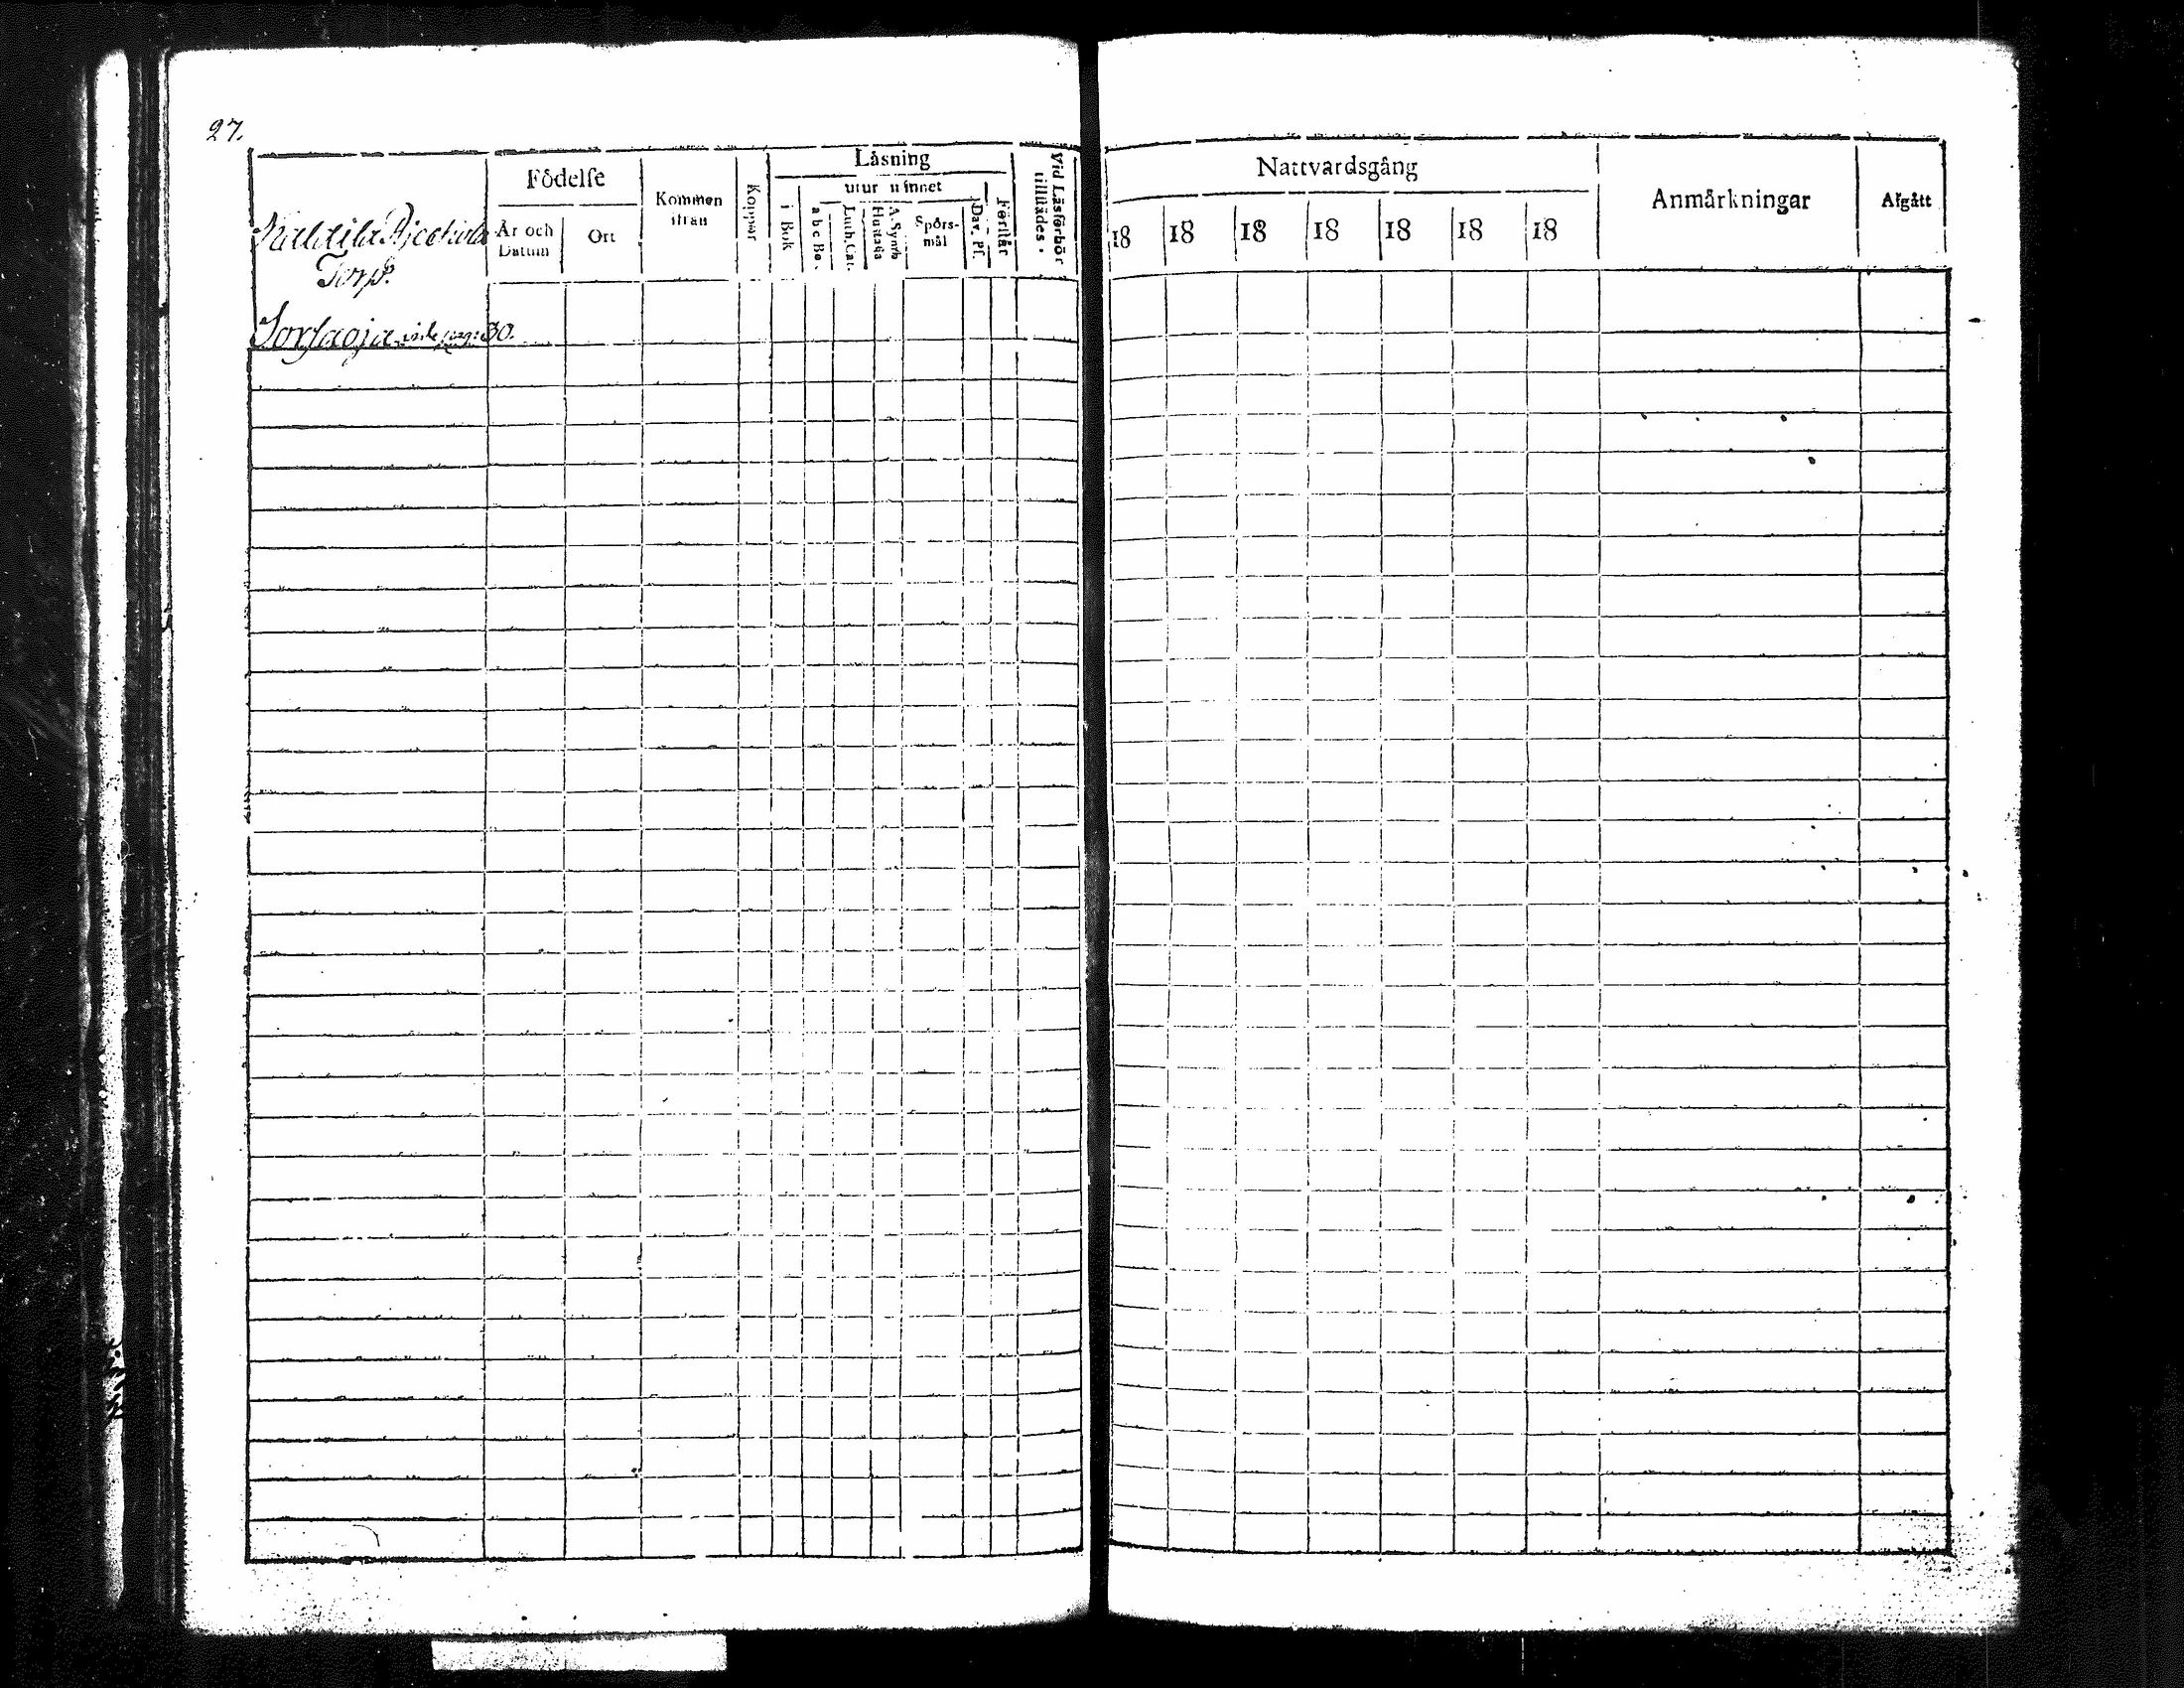 27.
Torp.
Torsaoja vide pag: 30.
Födelſe
År och Datum
Ort
Kommen ifrån
Koppor
Läsning
i Bok
utur minnet
a b c Bo.
Luth. Cat.
Huſtafla
A. Symb
Spörsmål
Dav. Pſ.
Förſtår
Vid Läsförhör tillſtädes.
Nattvardsgång
18 18 18 18 18 18 18
Anmärkningar
Afgått